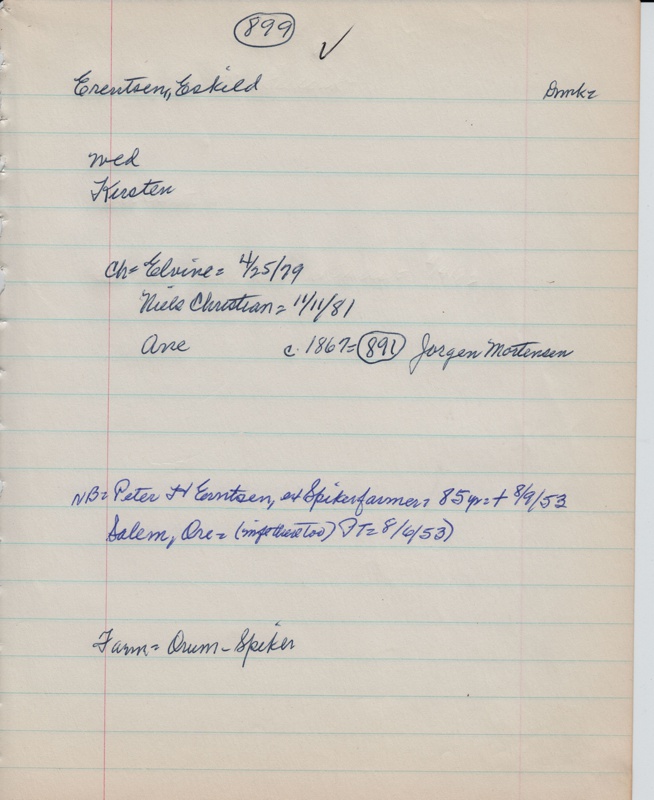 899 ✓
Erentsen, Eskild Dmk=
wed
Kirsten
Ch= Elvine= 4/25/79
Niels Christian= 11/11/81
Ane c. 1867= 891 Jorgen Mortensen
NB= Peter H Erntsen, ex Spikerfarmer, 85 yr= + 8/9/53
Salem, Ore= ( too) FT= 8/6/53)
Farm= Orum - Spiker